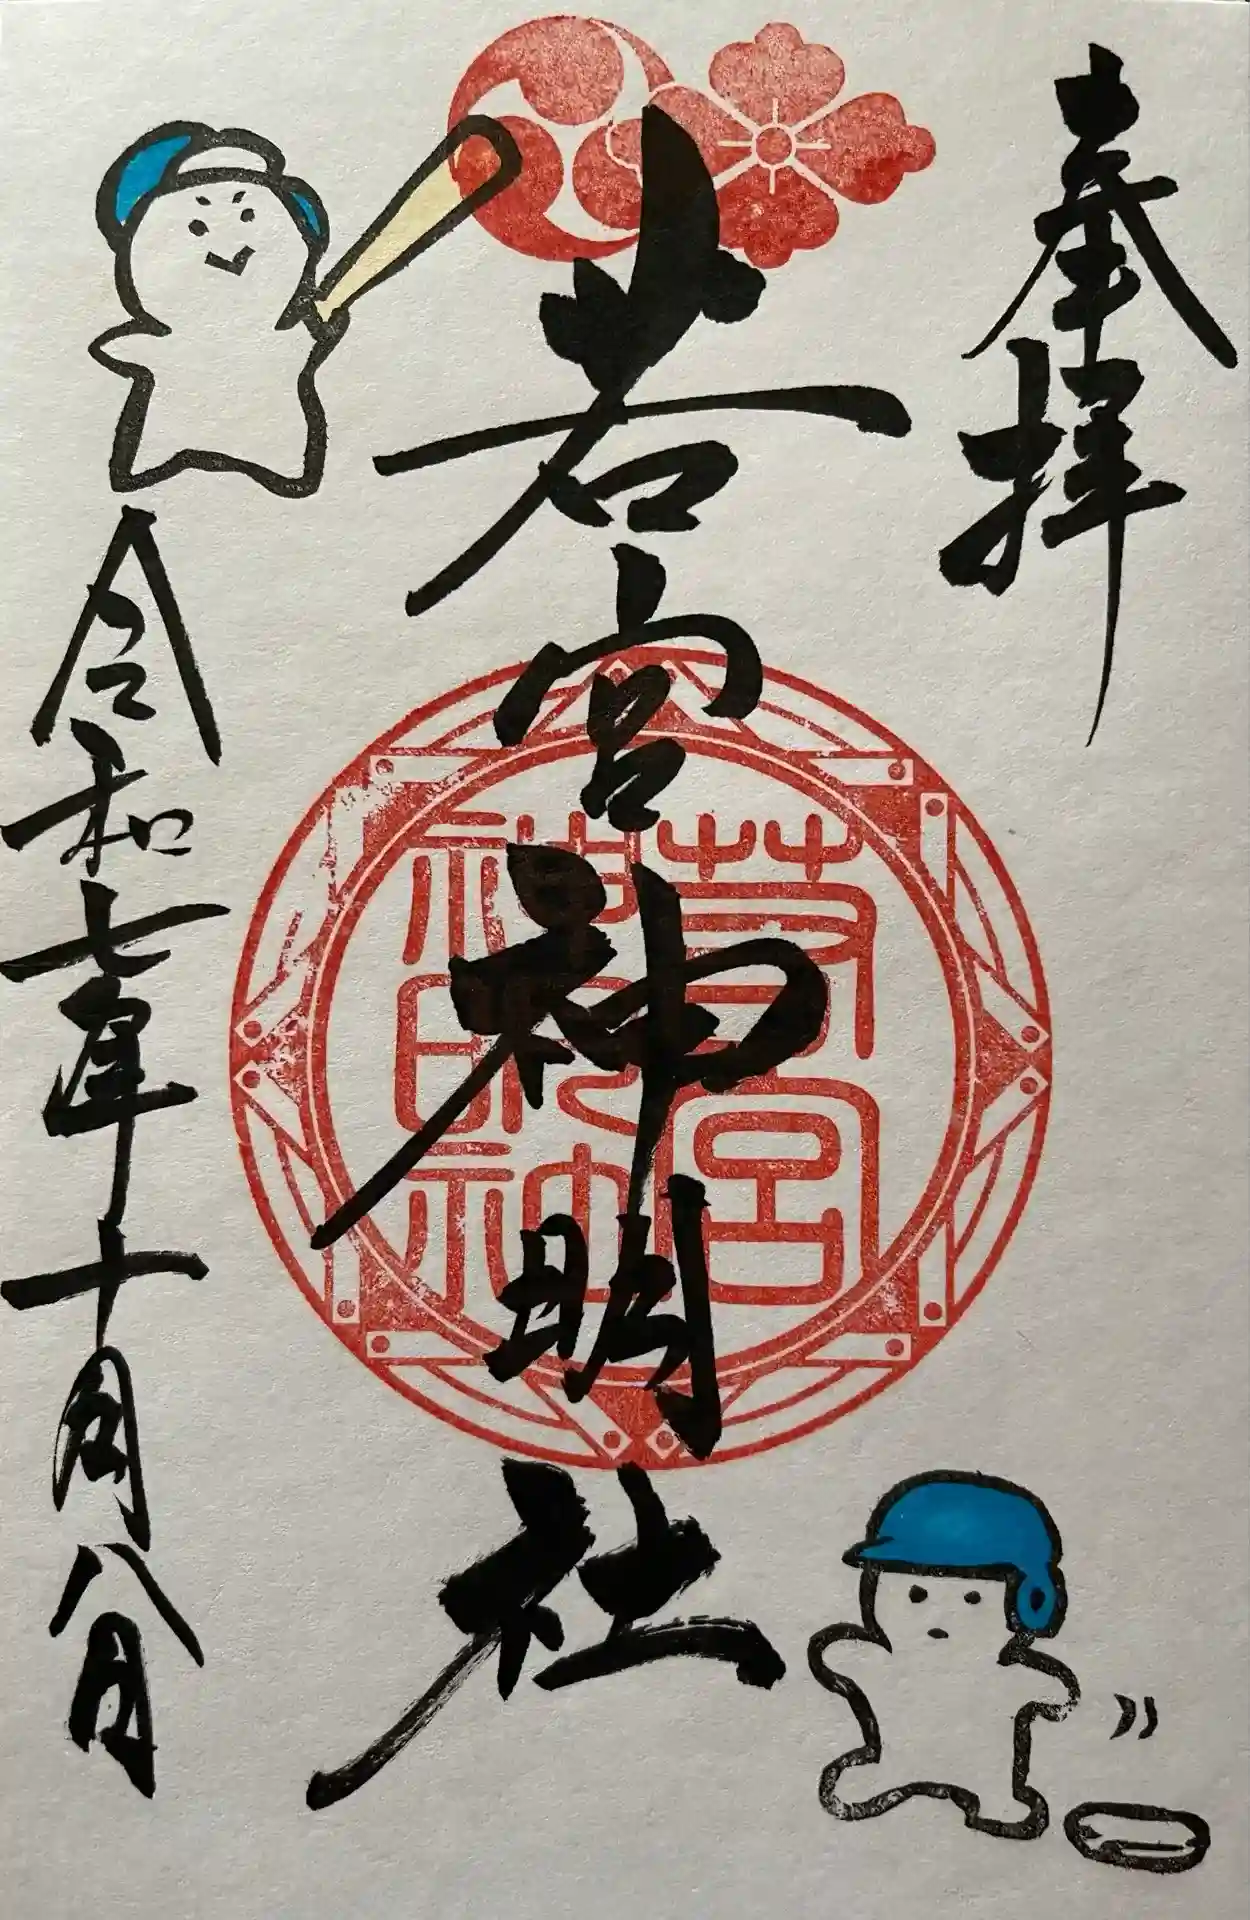 奉拝
若宮神明社
若宮
神明社
令和七年十月八日